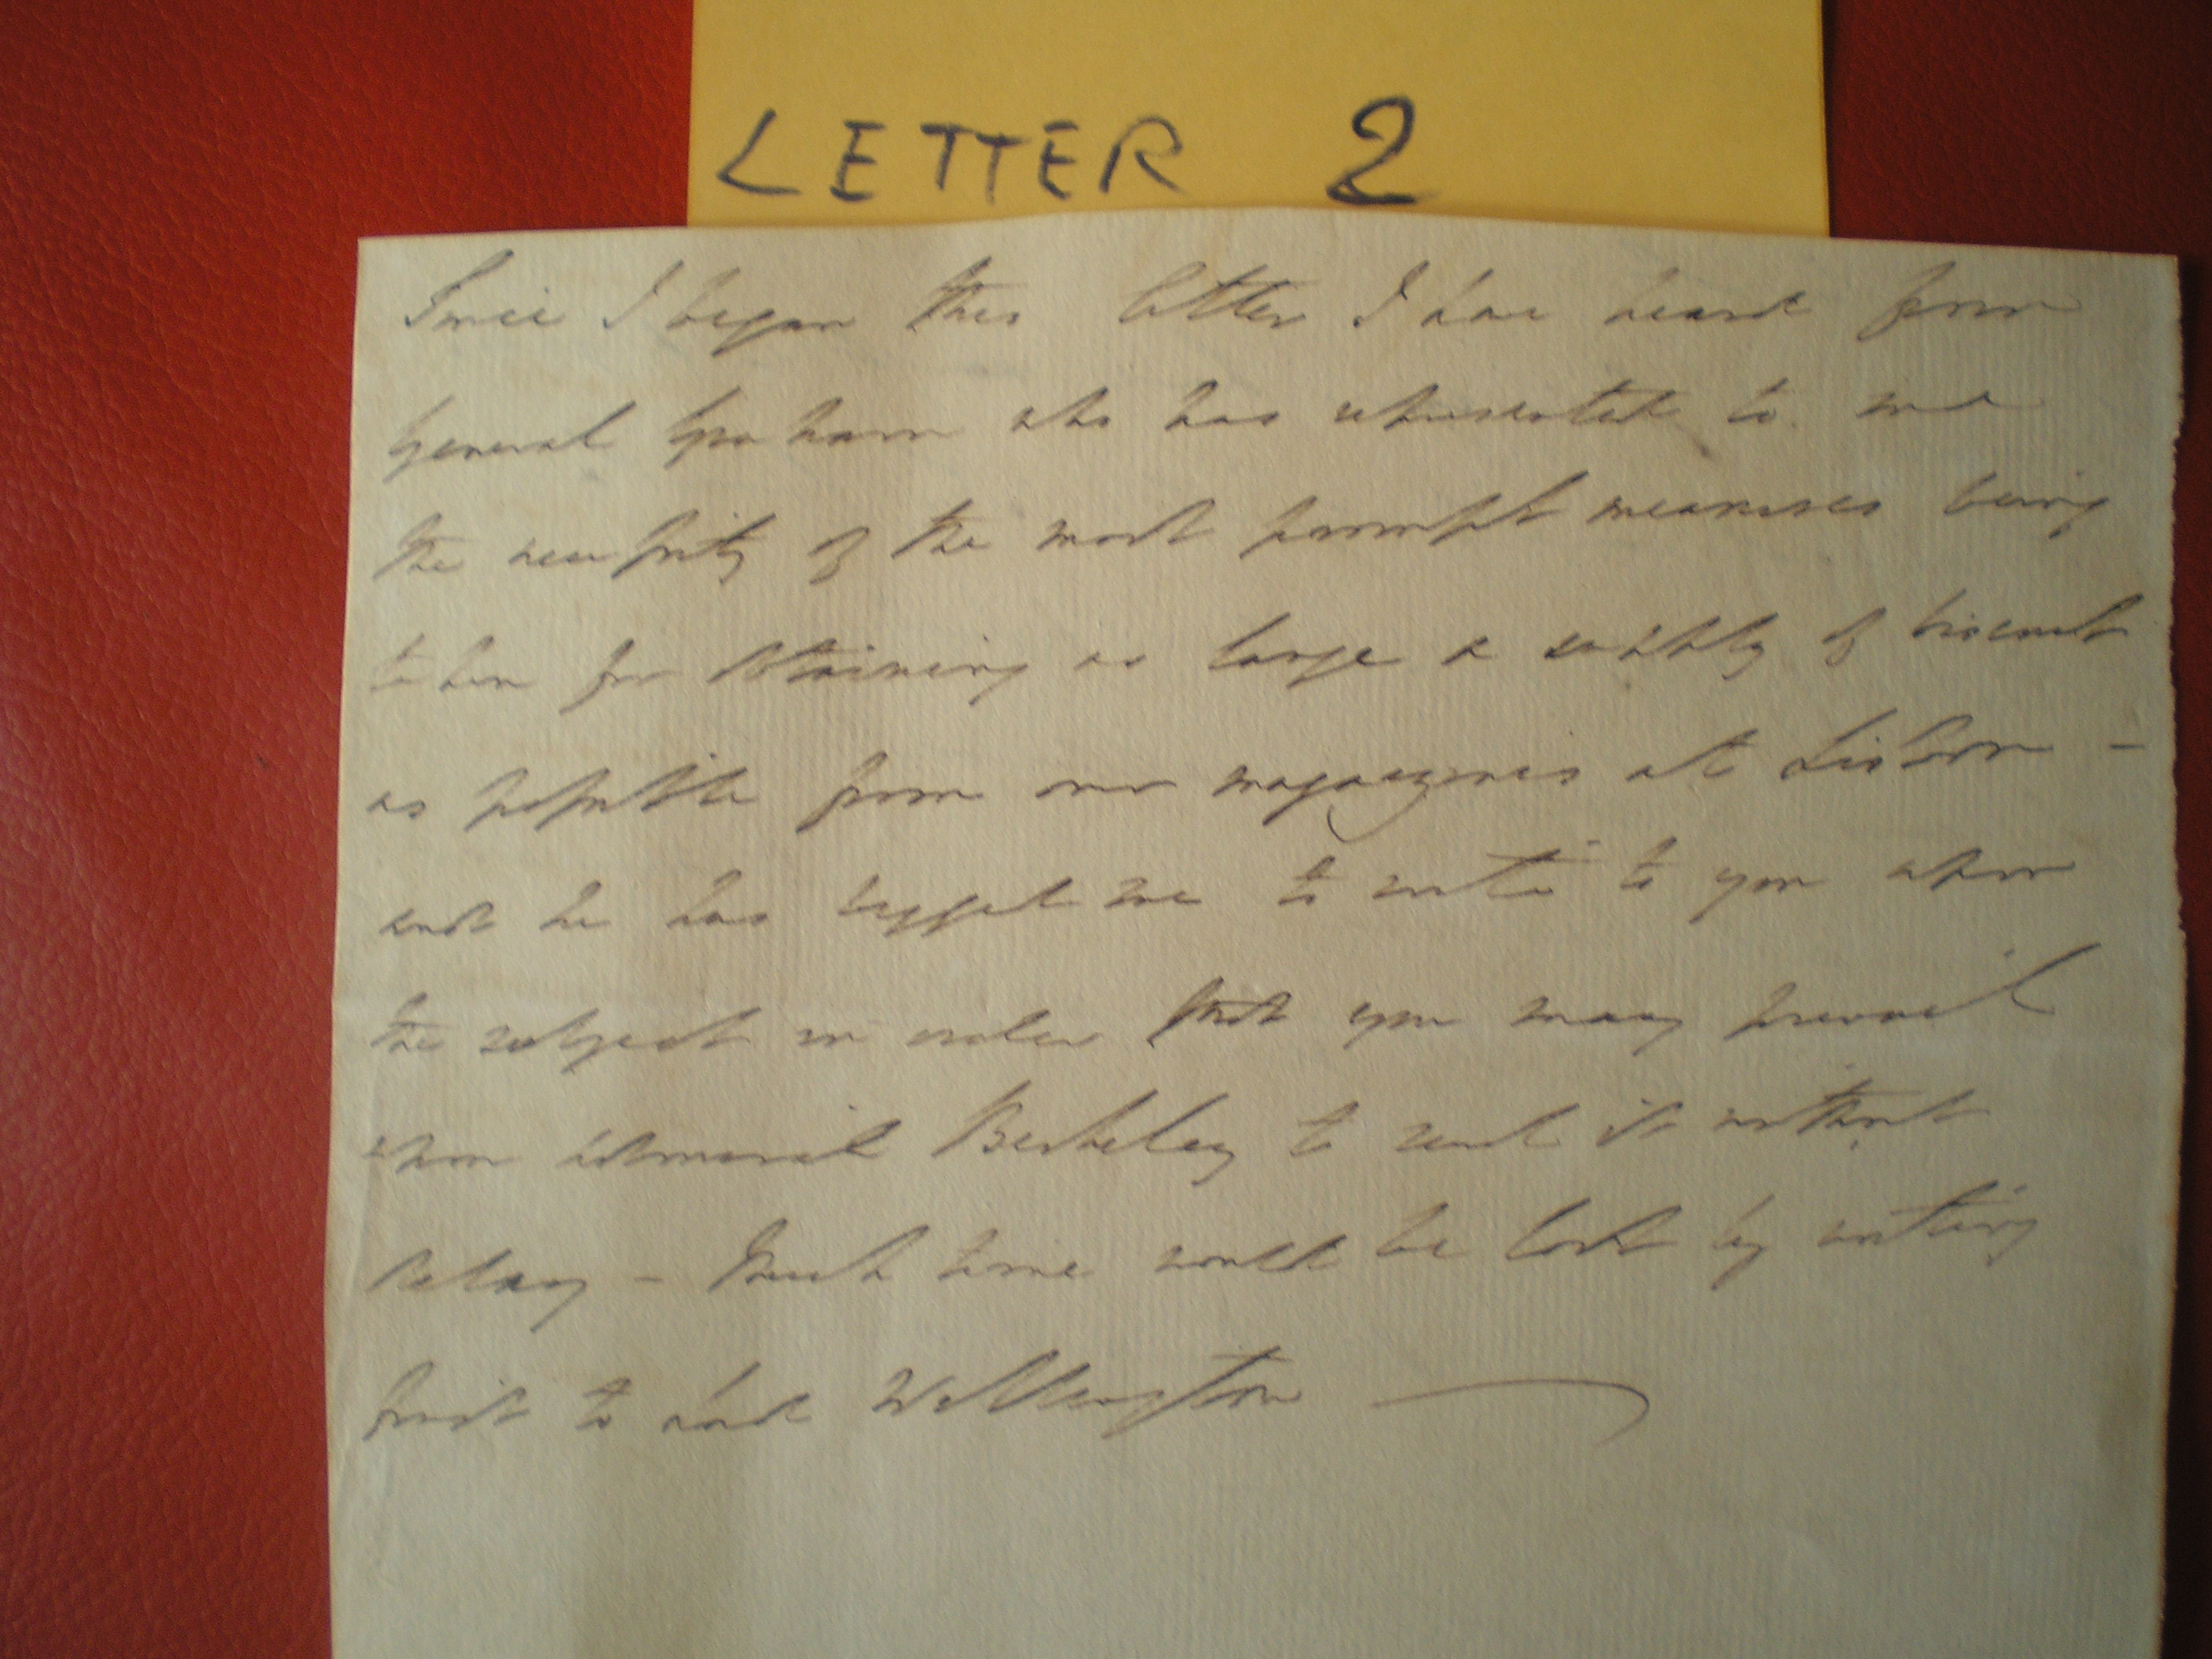 LETTER 2
Since I began this letter I have heard from
General Graham who has represented to me
the necessity of the most prompt measures being
taken for obtaining as large a supply of biscuit
as possible from our magazines at Lisbon -
and he has begged me to write to you upon
the subject in order that you may prevail
upon Admiral Berkeley to send it without
delay - Much time would be lost by writing
first to Lord Wellington